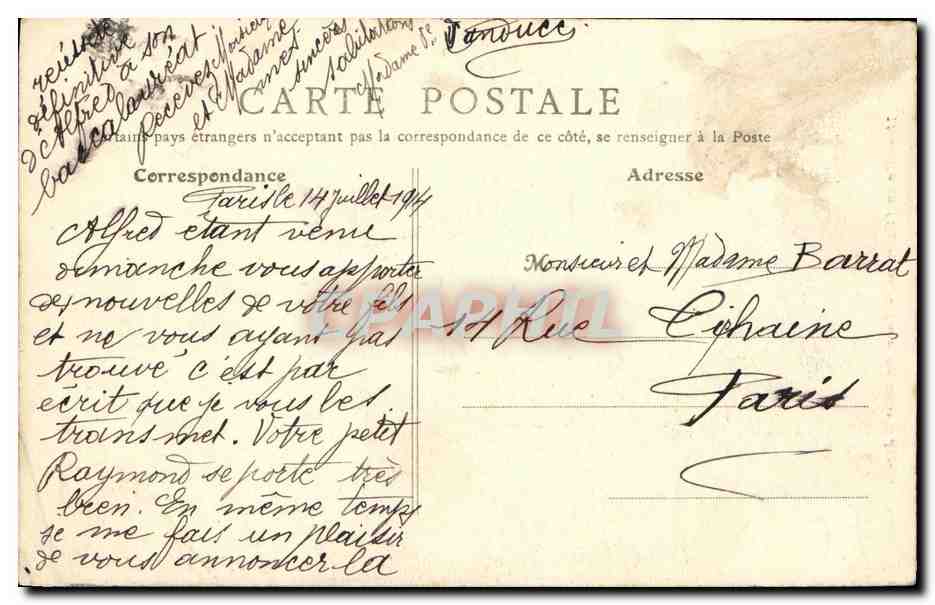 CARTE POSTALE
tains pays étrangers n'acceptant pas la correspondance de ce côté, se renseigner à la Poste
Correspondance
Adresse
Paris le 14 juillet 1914
Alfred étant venu
dimanche vous apporter
des nouvelles de votre fils
et ne vous ayant pas
trouvé c'est par
écrit que je vous les
transmet. Votre petit
Raymond se porte très
bien. En même temps
je me fais un plaisir
de vous annoncer la
réussite
définitive
d'Alfred à son
baccalauréat
Recevez Monsieur
et Madame
mes sincères
salutations
Madame
Monsieur et Madame Barrat
14 Rue
Paris
CPAPHIL